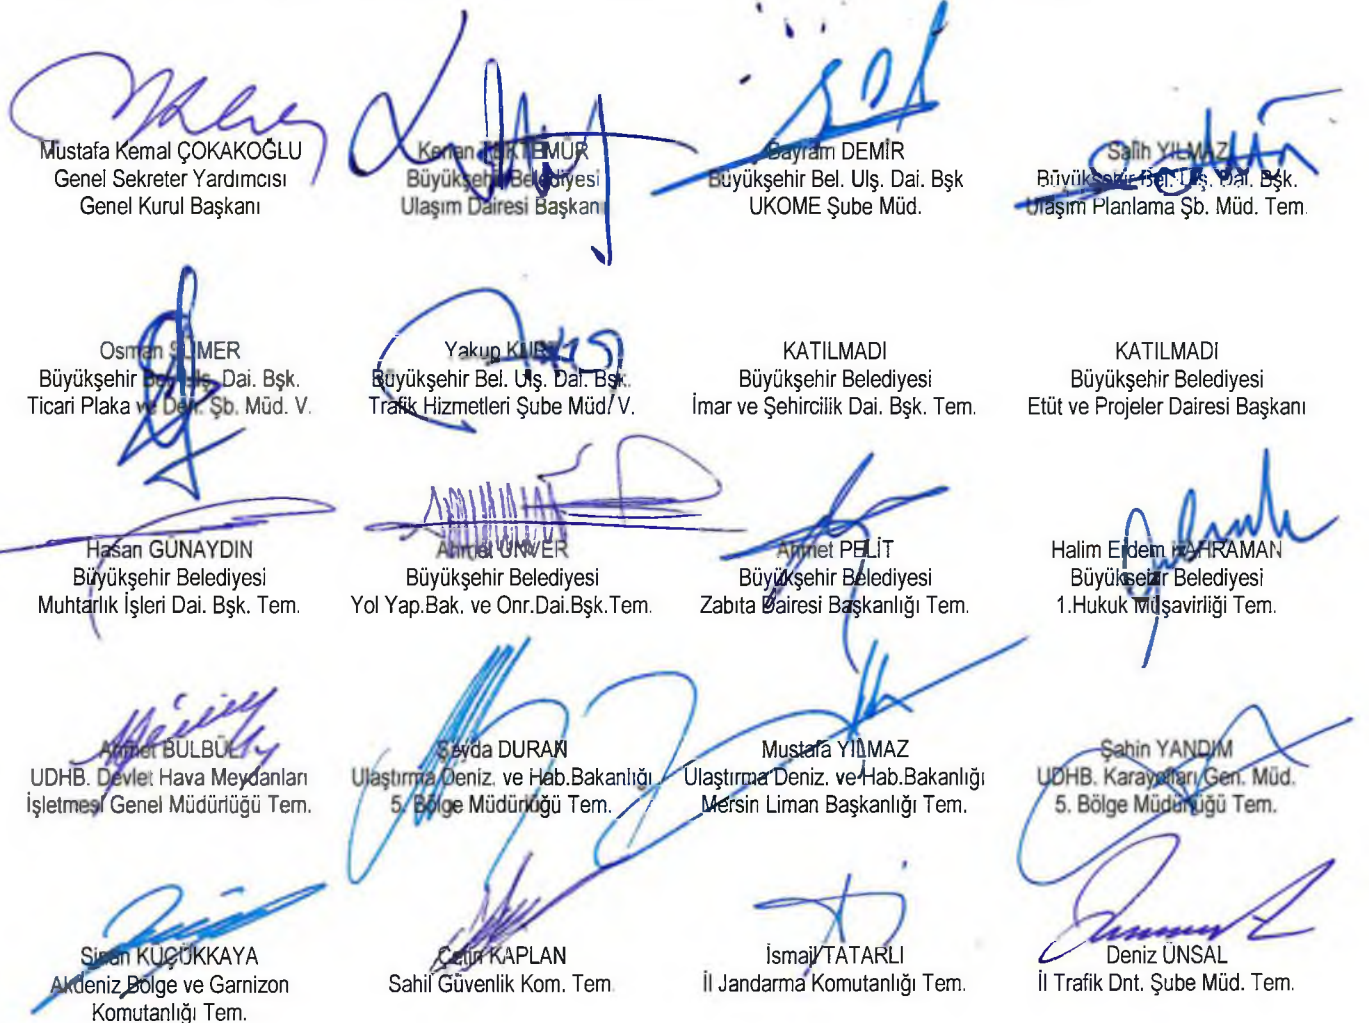 Mustafa Kemal ÇOKAKOĞLU
Genel Sekreter Yardımcısı
Genel Kurul Başkanı
Kenan
Büyükşehir Belediyesi
Ulaşım Dairesi Başkanı
Bayram DEMİR
Büyükşehir Bel. Ulş. Dai. Bşk
UKOME Şube Müd.
Salih YILMAZ
Büyükşehir Bel. Ulş. Dai. Bşk.
Ulaşım Planlama Şb. Müd. Tem.
Osman SÜMER
Büyükşehir Bel. Ulş. Dai. Bşk.
Ticari Plaka ve Den. Şb. Müd. V.
Yakup KURT
Büyükşehir Bel. Ulş. Dai. Bşk.
Trafik Hizmetleri Şube Müd. V.
KATILMADI
Büyükşehir Belediyesi
İmar ve Şehircilik Dai. Bşk. Tem.
KATILMADI
Büyükşehir Belediyesi
Etüt ve Projeler Dairesi Başkanı
Hasan GÜNAYDIN
Büyükşehir Belediyesi
Muhtarlık İşleri Dai. Bşk. Tem.
Ahmet ÜNVER
Büyükşehir Belediyesi
Yol Yap.Bak. ve Onr.Dai.Bşk.Tem.
Ahmet PELİT
Büyükşehir Belediyesi
Zabıta Dairesi Başkanlığı Tem.
Halim Erdem KAHRAMAN
Büyükşehir Belediyesi
1.Hukuk Müşavirliği Tem.
Ahmet BÜLBÜL
UDHB. Devlet Hava Meydanları
İşletmesi Genel Müdürlüğü Tem.
Şeyda DURAN
Ulaştırma Deniz. ve Hab.Bakanlığı
5. Bölge Müdürlüğü Tem.
Mustafa YILMAZ
Ulaştırma Deniz. ve Hab.Bakanlığı
Mersin Liman Başkanlığı Tem.
Şahin YANDIM
UDHB. Karayolları Gen. Müd.
5. Bölge Müdürlüğü Tem.
Sinan KÜÇÜKKAYA
Akdeniz Bölge ve Garnizon
Komutanlığı Tem.
Çetin KAPLAN
Sahil Güvenlik Kom. Tem.
İsmail TATARLI
İl Jandarma Komutanlığı Tem.
Deniz ÜNSAL
İl Trafik Dnt. Şube Müd. Tem.